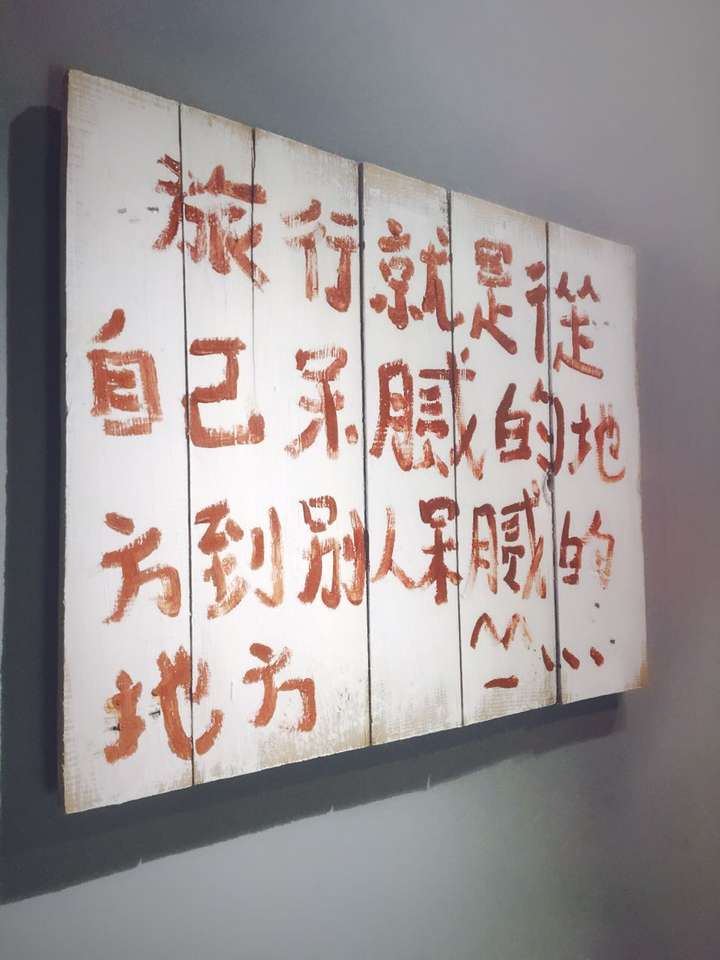 旅行就是從
自己呆膩的地
方到別人呆膩的
地方